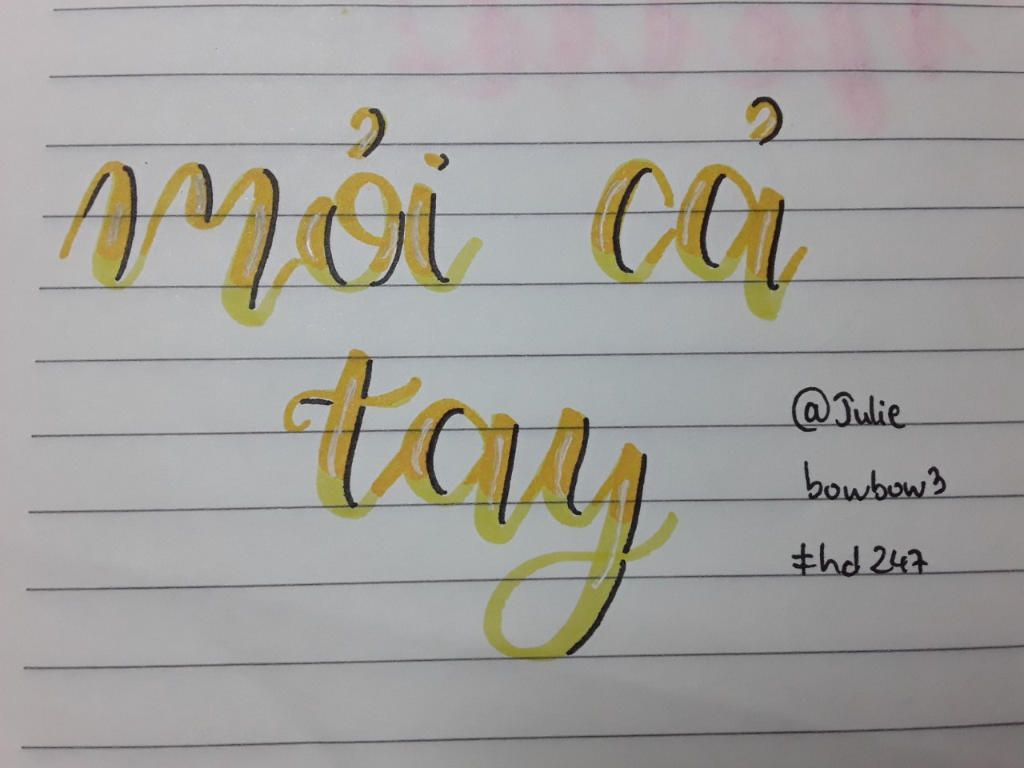 mỏi cả
tay
@Julie
bowbow3
#hd247